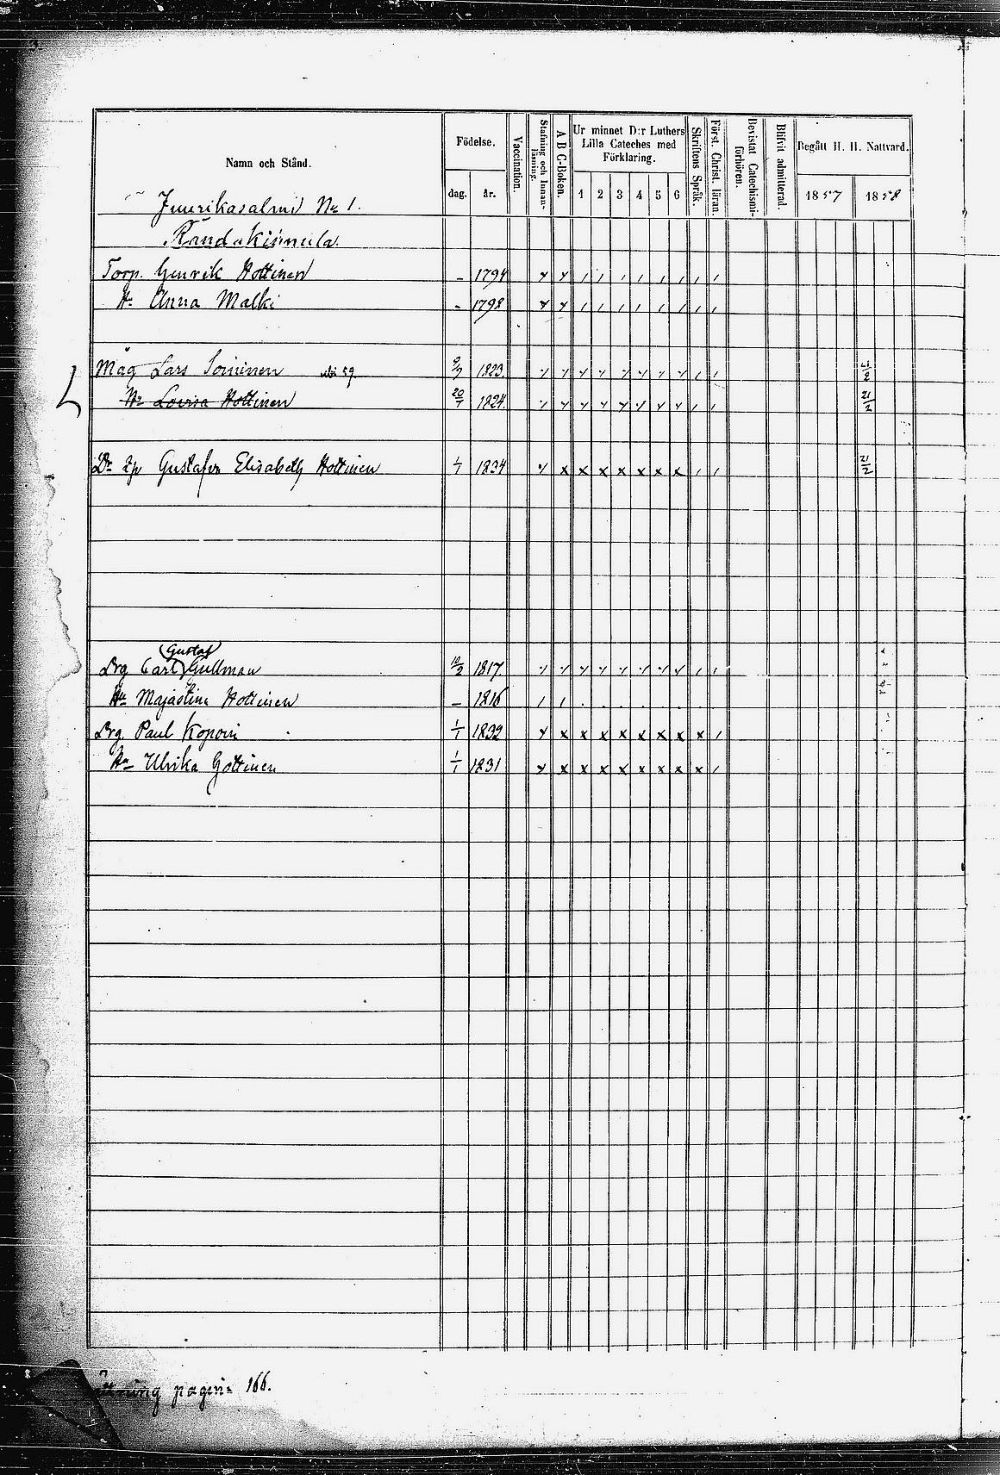 Namn och Stånd.
Födelse.
dag.
år.
Vaccination.
Stafning och Innanläsning.
A B C-Boken.
Ur minnet D:r Luthers
Lilla Cateches med
Förklaring.
1 2 3 4 5 6
Skriftens Språk.
Först. Christ. läran.
Bevistat Catechismiförhören.
Blifvit admitterad.
Begått H. H. Nattvard.
1857 1858
No 1.
Torp. Henrik Hottinen - 1794
Hu Anna Malki - 1798
Måg Lars Soininen 59 9/7 1823 21/2
Hu Lovisa Hottinen 20/7 1824 21/2
Dr Gustafva Elisabeth Hottinen 1834 21/2
Gustaf
Drg Carl Gullman 1817
Hu Majastina Hottinen - 1816
Drg Paul Koponi 1/1 1832
Hu Ulrika Gottinen 1/1 1831
pagin 166.